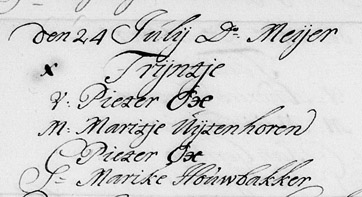 den 24 Julij Do. Meijer
x Trijntje
V: Pieter Ox
M: Maritje Uijtenhoren
G Pieter Ox
St Marike Houwbakker